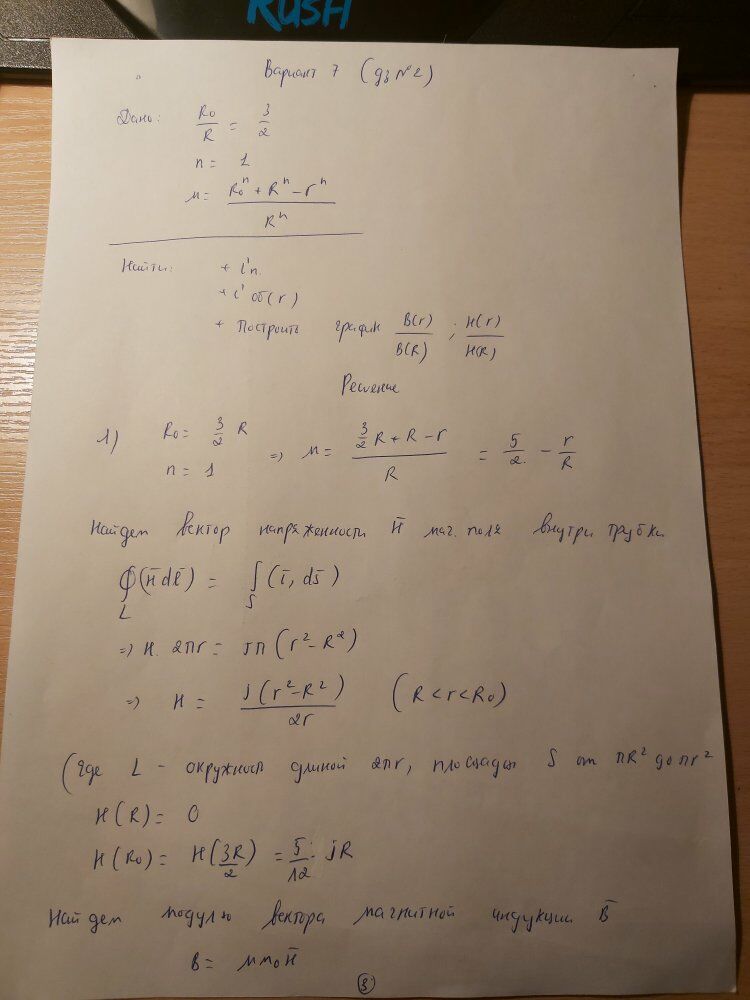 RUSH
Вариант 7 (дз №2)
Дано: R₀/R = 3/2
n = 1
μ = (R₀ⁿ + Rⁿ - rⁿ)/Rⁿ
Найти: + i'п.
+ i' об(r)
+ Построить график B(r)/B(R) ; H(r)/H(R)
Решение
1) R₀ = 3/2 R
n = 1 => μ = (3/2 R + R - r)/R = 5/2 - r/R
Найдем вектор напряженности H̄ маг. поля внутри трубки
∮_L (H̄ dℓ̄) = ∫_S (ī, ds̄)
=> H · 2πr = jπ (r² - R²)
=> H = j(r² - R²)/2r (R < r < R₀)
(где L - окружност длиной 2πr, площадью S от πR² до πr²
H(R) = 0
H(R₀) = H(3R/2) = 5/12 · jR
Найдем модулю вектора магнитной индукции B̄
B = μμ₀H̄
3